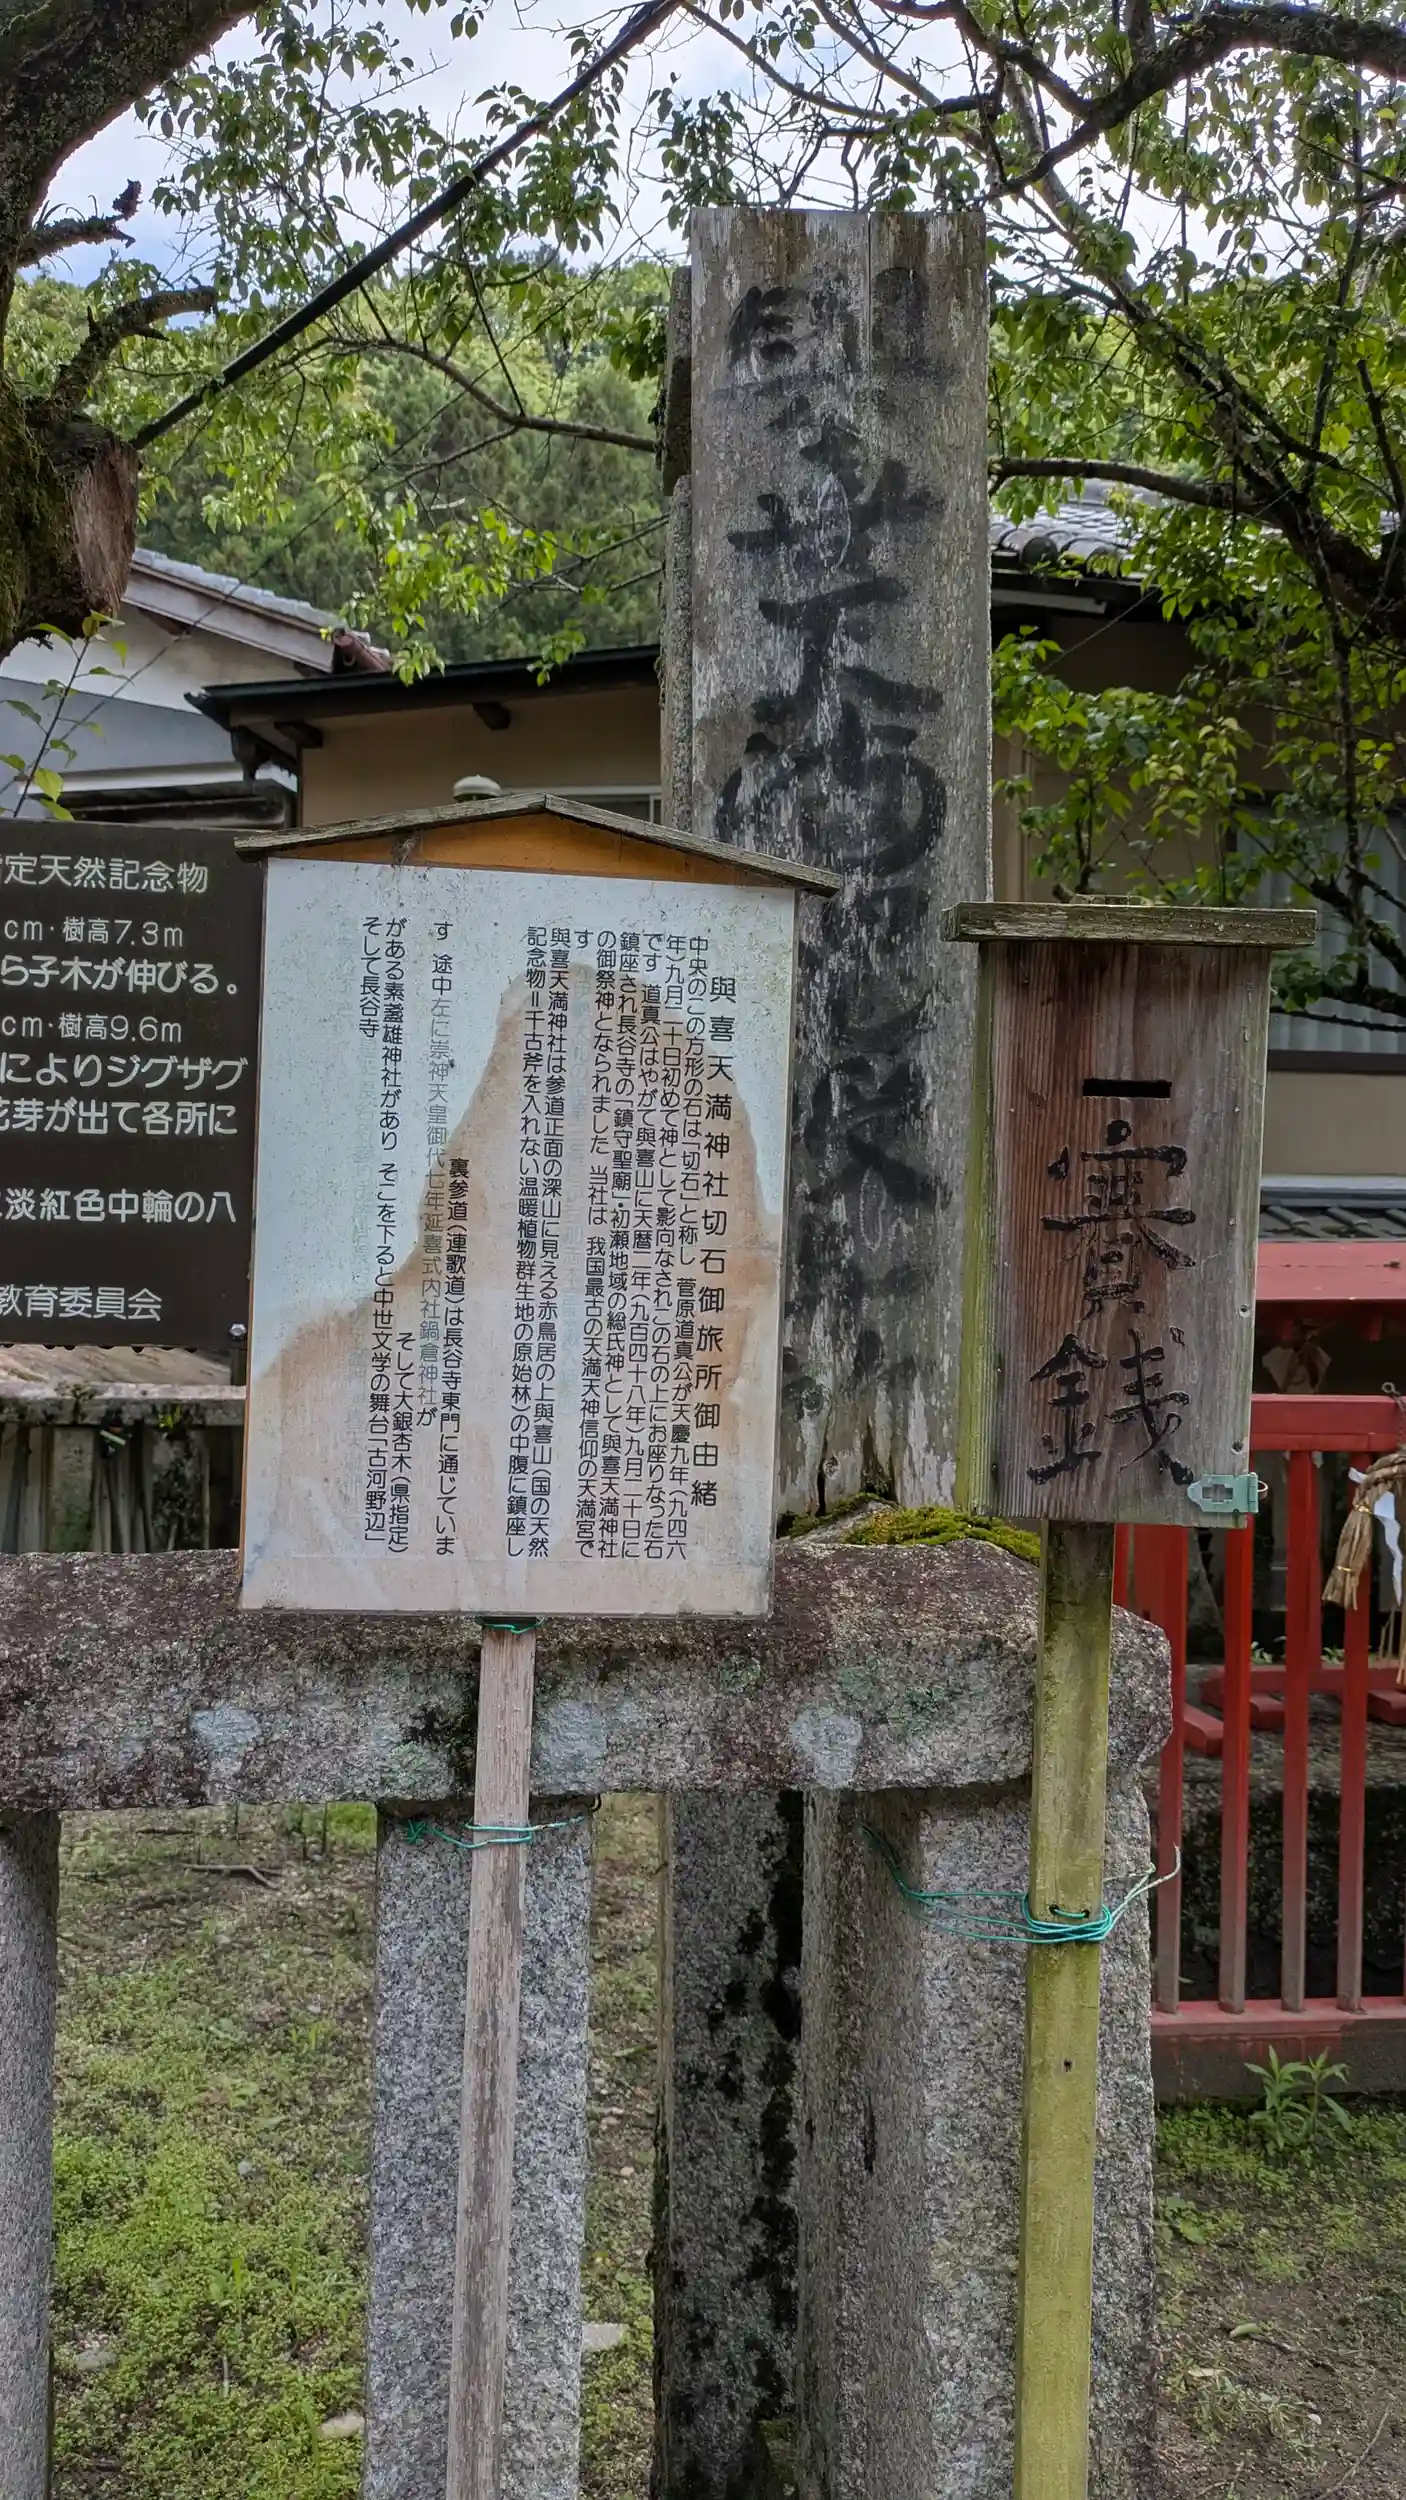 與喜天満神社切石御旅所御由緒
中央のこの方形の石は「切石」と称し 菅原道真公が天慶九年(九四六
年)九月二十日初めて神として影向なされこの石の上にお座りなった石
です 道真公はやがて與喜山に天暦二年(九百四十八年)九月二十日に
鎮座され長谷寺の「鎮守聖廟」・初瀬地域の総氏神として與喜天満神社
の御祭神となられました 当社は 我国最古の天満天神信仰の天満宮で
す
與喜天満神社は参道正面の深山に見える赤鳥居の上與喜山(国の天然
記念物=千古斧を入れない温暖植物群生地の原始林)の中腹に鎮座し
裏参道(連歌道)は長谷寺東門に通じていま
す 途中左に崇神天皇御代七年延喜式内社鍋倉神社が
そして大銀杏木(県指定)
がある素盞雄神社があり そこを下ると中世文学の舞台「古河野辺」
そして長谷寺
賽銭
定天然記念物
cm・樹高7.3m
ら子木が伸びる。
cm・樹高9.6m
によりジグザグ
花芽が出て各所に
淡紅色中輪の八
教育委員会